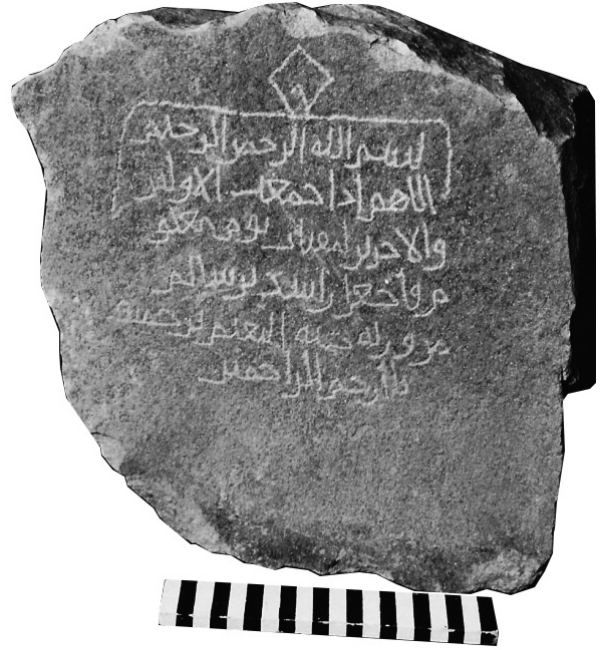 بسم الله الرحمن الرحيم
اللهم اذا جمعت الاولين
والاخرين لميقات يوم معلو
م فاجعل راشد بن سالم
من ورثة جنة النعيم برحمتك
يا ارحم الراحمين